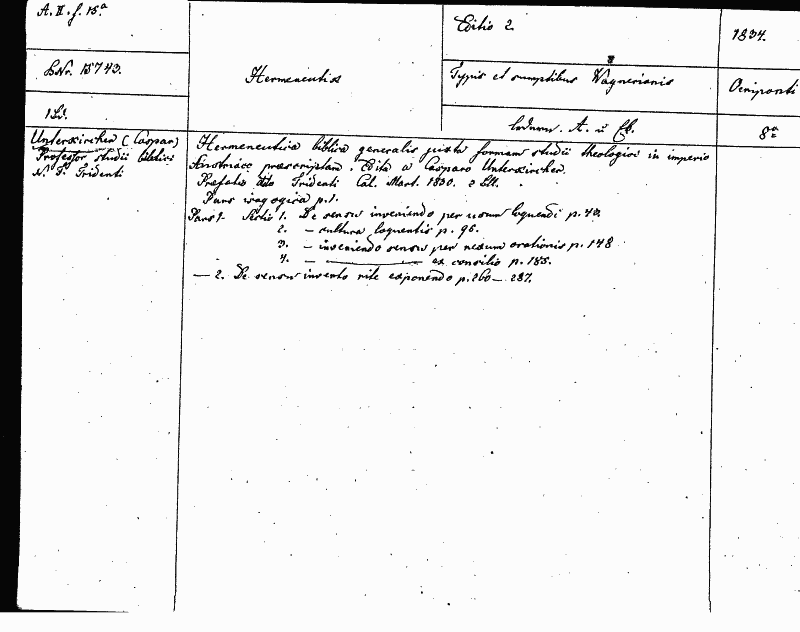 A. II. f. 15ª
Editio 2.
1834.
LNr. 15743.
Hermeneutica
Typis et sumptibus Wagnerianis
Oeniponti
1 Bd.
A. u
8º
Unterkircher (Caspar)
Professor studii biblici
N. F. Tridenti
Hermeneutica biblica generalis juxta formam studii theologici in imperio
Austriaco praescriptam. Edita a Casparo Unterkircher.
Prefatio dto Tridenti Cal. Mart. 1830. 2 Bll.
Pars isagogica p. 1.
Pars 1. Sectio 1. De sensu inveniendo per usum loquendi p. 40.
2. — cultura loquentis p. 96.
3. — inveniendo sensu per nexum orationis p. 148
4. — ex consilio p. 185.
— 2. De sensu invento rite exponendo p. 260 — 287.